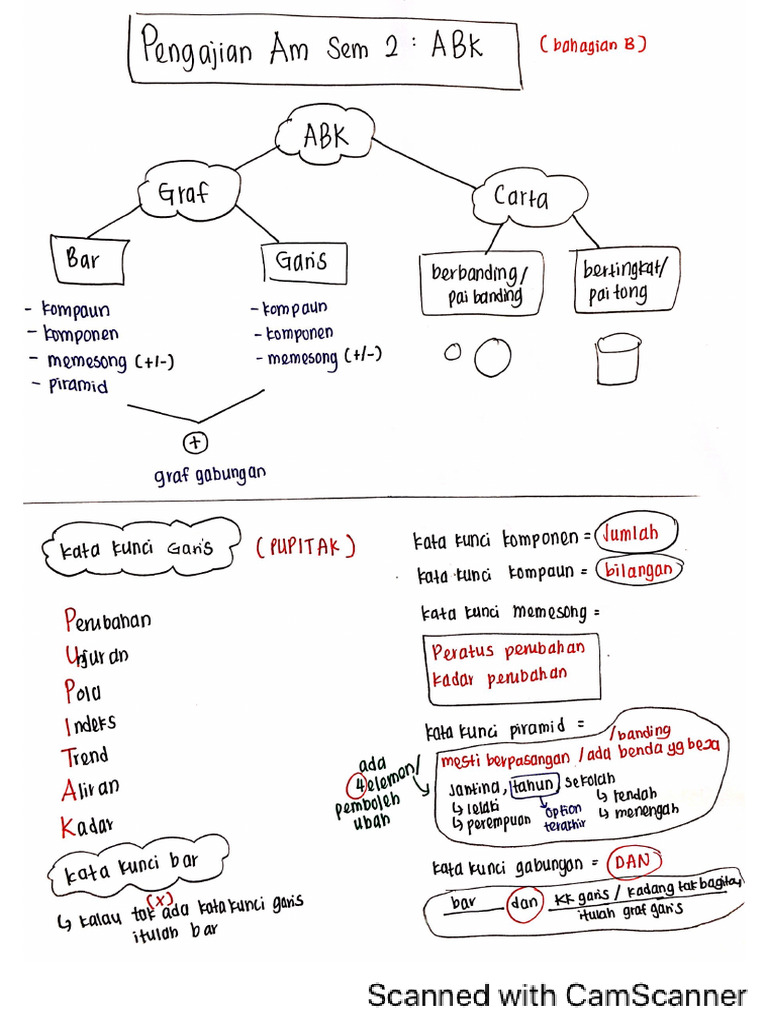 Pengajian Am Sem 2 : ABK
(bahagian B)
ABK
Graf
Carta
Bar
Garis
berbanding/
pai banding
bertingkat/
pai tong
- kompaun
- komponen
- memesong (+/-)
- piramid
- kompaun
- komponen
- memesong (+/-)
+
graf gabungan
kata kunci Garis
(PUPITAK)
Perubahan
Unjuran
Pola
Indeks
Trend
Aliran
Kadar
kata kunci bar
↳ kalau tak ada kata kunci garis
(x)
itulah bar
kata kunci komponen = Jumlah
kata kunci kompaun = bilangan
kata kunci memesong =
Peratus perubahan
kadar perubahan
kata kunci piramid =
/banding
mesti berpasangan / ada benda yg beza
jantina, tahun, sekolah
↳ lelaki
↳ perempuan
option
terakhir
↳ rendah
↳ menengah
ada
4 elemen/
pemboleh
ubah
kata kunci gabungan = DAN
bar dan KK garis / kadang tak bagitau
itulah graf garis
Scanned with CamScanner